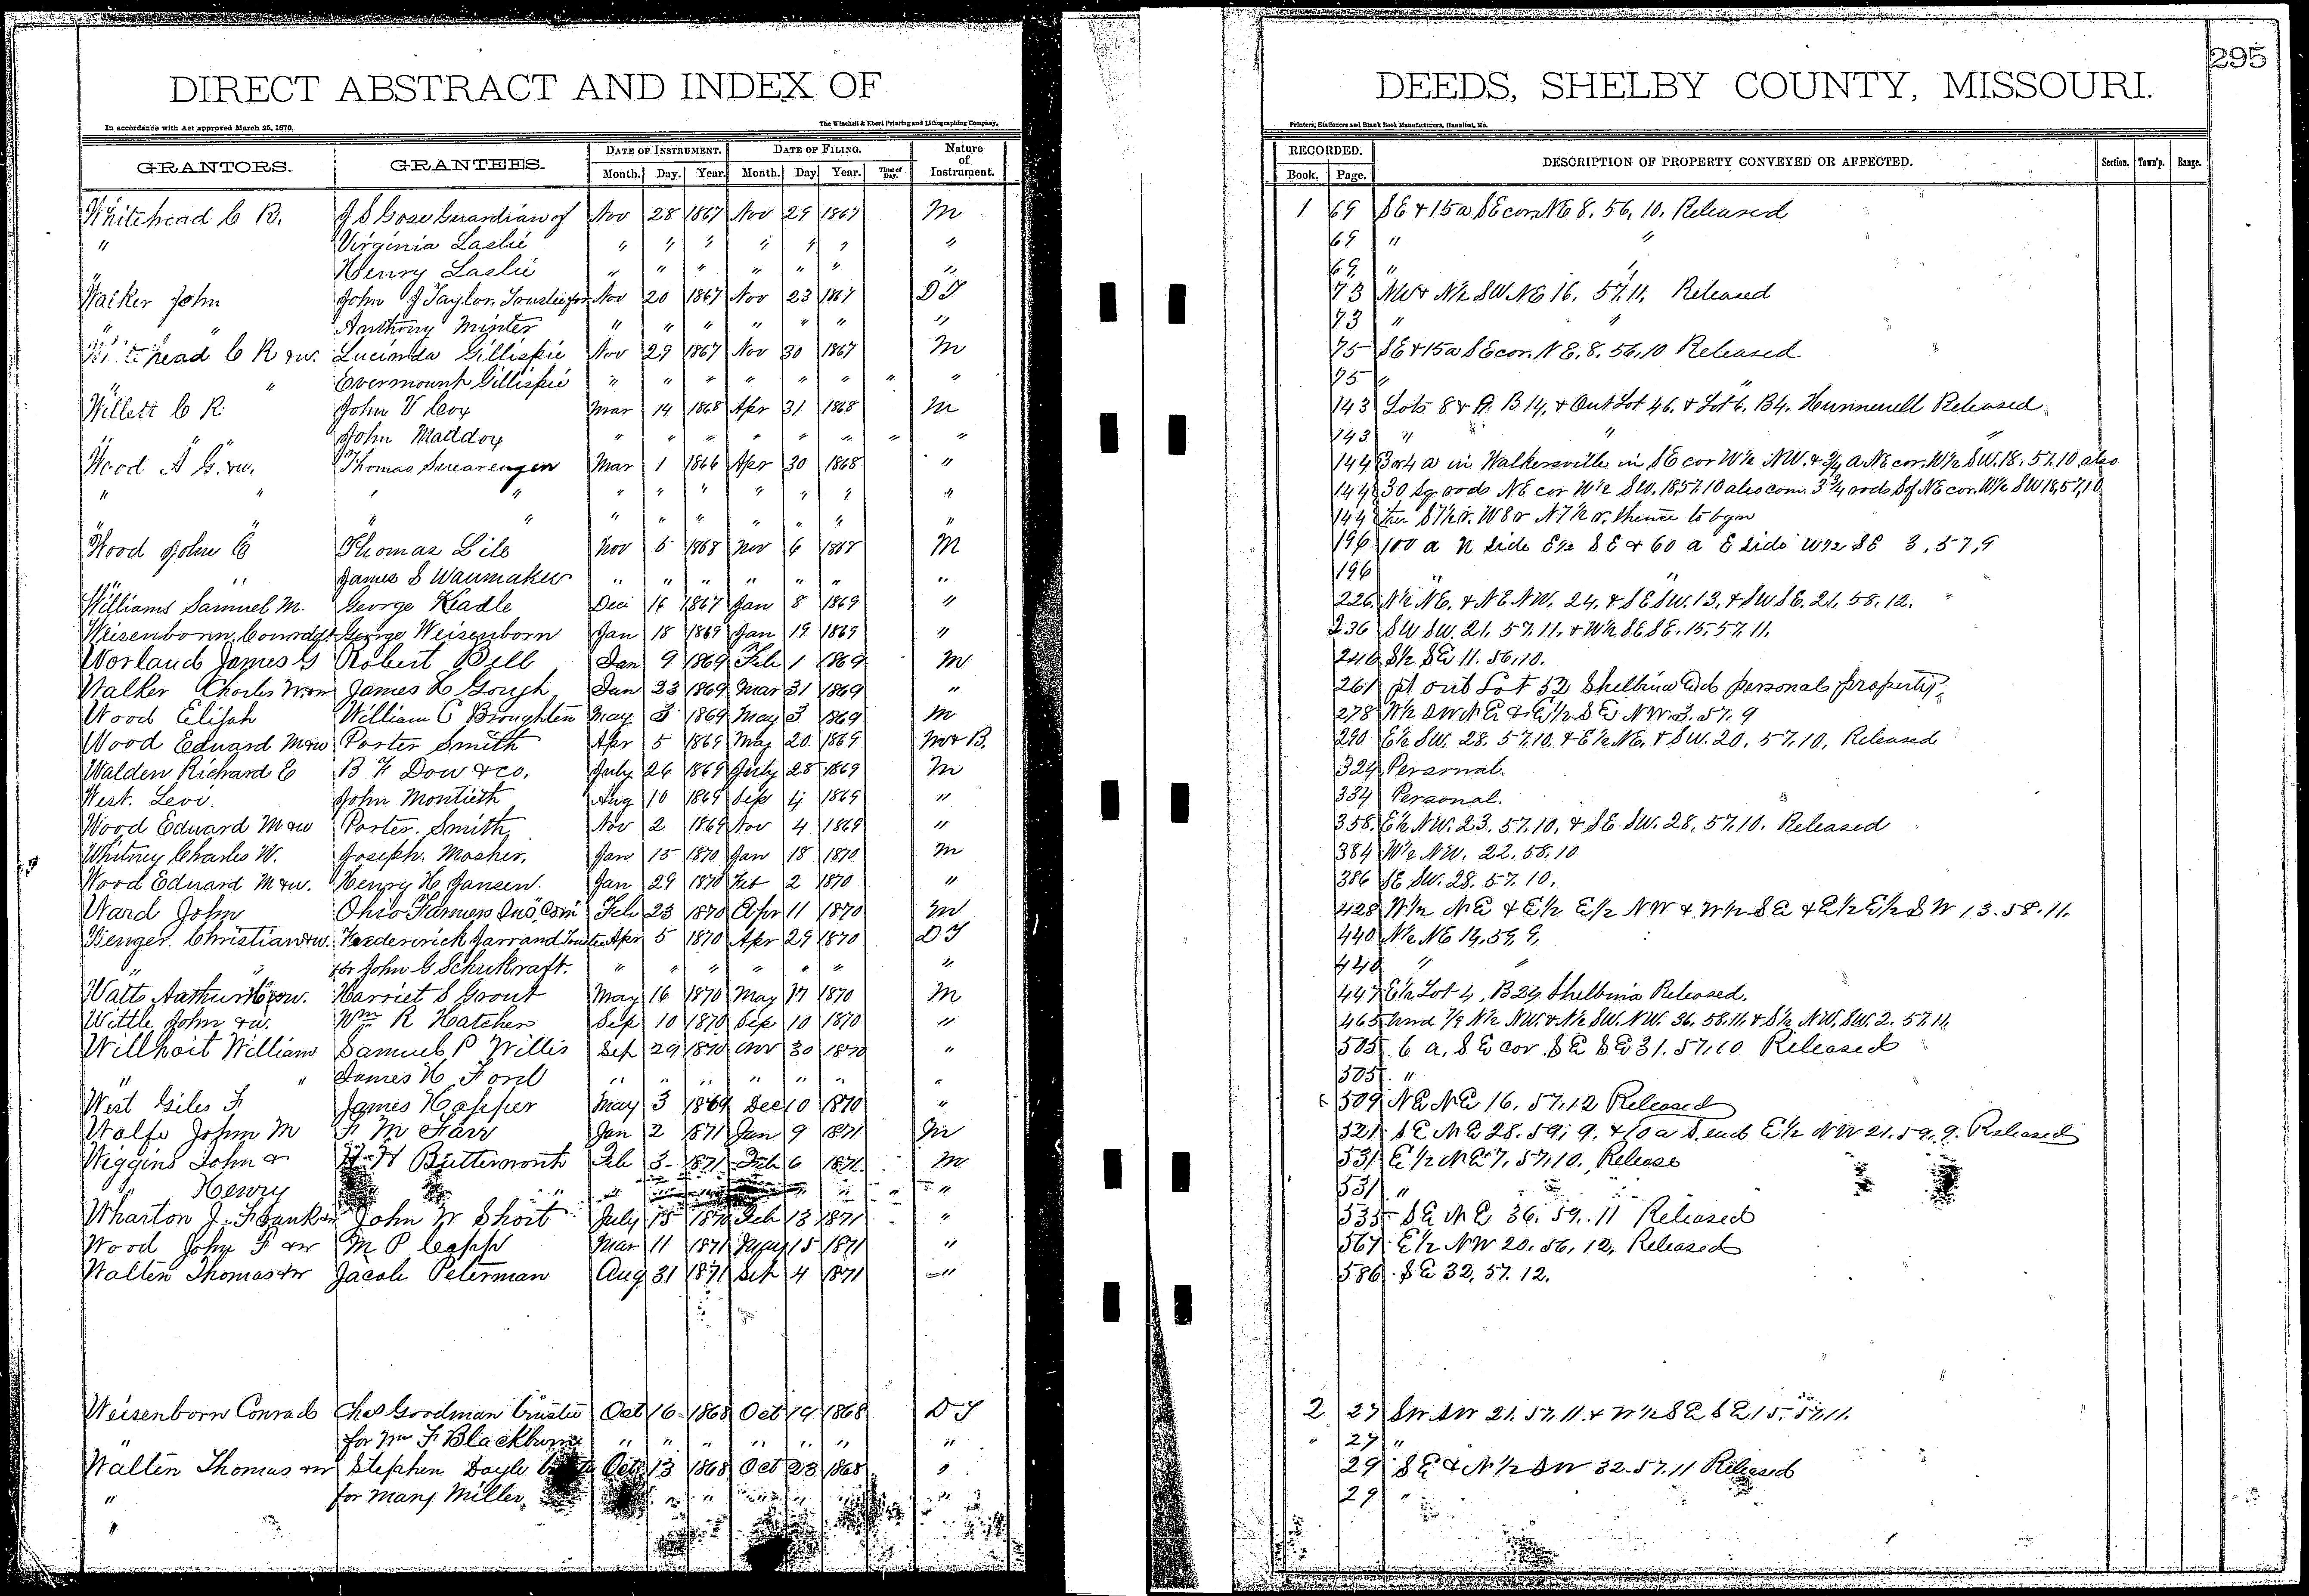 295
DIRECT ABSTRACT AND INDEX OF DEEDS, SHELBY COUNTY, MISSOURI.
In accordance with Act approved March 25, 1870. The Winchell & Ebert Printing and Lithographing Company, Printers, Stationers and Blank Book Manufacturers, Hannibal, Mo.
GRANTORS. GRANTEES. DATE OF INSTRUMENT. DATE OF FILING. Nature of Instrument. RECORDED. DESCRIPTION OF PROPERTY CONVEYED OR AFFECTED. Section. Town'p. Range.
Month. Day. Year. Month. Day Year. Time of Day. Book. Page.
Whitehead C B. J S Gose Guardian of Nov 28 1867 Nov 29 1867 M 1 69 SE & 15a SE cor. NE 8. 56, 10. Released
" Virginia Laslie " " " " " " " 69 " "
" Henry Laslie " " " " " " " 69 " "
Walker John John J Taylor. Trustee for Nov 20 1867 Nov 23 1867 DT 73 NW & N½ SW NE 16. 57.11. Released
" " Anthony Minter " " " " " " " 73 " "
Whitehead C R & w. Lucinda Gillispie Nov 29 1867 Nov 30 1867 M 75 SE & 15a SE cor. NE. 8. 56.10 Released
" " Evermount Gillispie " " " " " " " " 75 " "
Willett C R. John V Cox Mar 14 1868 Apr 31 1868 M 143 Lots 8 & B 14. & Out Lot 46. & Lot 6. B4. Hunnewell Released
" " " John Maddox " " " " " " " " 143 " " "
Wood A G. & w. Thomas Swearengen Mar 1 1866 Apr 30 1868 " 144 3 or 4 a in Walkersville in SE cor W½ NW. & ¾ a NE cor. W½ SW. 18. 57.10 also
" " " " " " " " " " " 144 30 sq. rods NE cor W½ SW. 18,57.10 also com. 3¾ rods S of NE cor. W½ SW 18,57,10
" " " " " " " " " 144 ther S 7½ r. W 8 r N 7½ r. thence to bgn
Wood John C Thomas Lile Nov 5 1868 Nov 6 1868 M 196 100 a N side E½ SE & 60 a E side W½ SE 3, 57, 9
" James S Wanmaker " " " " " " " 196 " "
Williams Samuel M. George Keadle Dec 16 1867 Jan 8 1869 " 226 N½ NE. & NE NW. 24. & SE SW. 13. & SW SE. 21. 58. 12.
Weisenborn, Conrad George Weisenborn Jan 18 1869 Jan 19 1869 " 236 SW SW. 21. 57. 11. & W½ SE SE. 15. 57. 11.
Worland James G Robert Bell Jan 9 1869 Feb 1 1869 M 246 S½ SE 11. 56, 10.
Walker Charles W & w James L Gough Jan 23 1869 Mar 31 1869 " 261 pt out Lot 52 Shelbina personal property
Wood Elijah William C Broughten May 3 1869 May 3 1869 M 278 W½ SW NE & E½ SE NW. 3. 57. 9
Wood Edward M & w Porter Smith Apr 5 1869 May 20 1869 M & B. 290 E½ SW. 28. 57.10. & E½ NE. & SW. 20. 57.10. Released
Walden Richard E B F Dow & co. July 26 1869 July 28 1869 M 324 Personal.
West. Levi. John Montieth Aug 10 1869 Sep 4 1869 " 334 Personal.
Wood Edward M & w Porter. Smith Nov 2 1869 Nov 4 1869 " 358. E½ NW. 23. 57.10. & SE SW. 28. 57.10. Released
Whitney Charles W. Joseph. Mosher. Jan 15 1870 Jan 18 1870 M 384 W½ NW. 22. 58.10
Wood Edward M & w. Henry H Jansen. Jan 29 1870 Feb 2 1870 " 386 SE SW. 28. 57. 10.
Ward John Ohio Farmers Ins. Com Feb 23 1870 Apr 11 1870 M 428 W½ NE & E½ E½ NW & W½ SE & E½ E½ SW 13. 58. 11.
Wenger. Christian & w. Frederick Jarrand Trustee Apr 5 1870 Apr 29 1870 DT 440 N½ NE 14. 59, 9,
" " for John G Schukraft. " " " " " " " 440 " "
Watts Arthur & w. Harriet S Grout May 16 1870 May 17 1870 M 447 E½ Lot 4, B 29 Shelbina Released.
Wittle John & w. Wm R Hatcher Sep 10 1870 Sep 10 1870 " 465 Und 7/9 N½ NW. & N½ SW. NW. 36. 58.11. & S½ NW. SW. 2. 57. 11.
Willhoit William Samuel P Willis Sep 29 1870 Nov 30 1870 " 505. 6 a. SE cor. SE SE 31. 57.10 Released
" " James H Ford " " " " " " " 505. "
West Giles F James Hopper May 3 1869 Dec 10 1870 " 509 NE NE 16. 57.12 Released
Wolfe John M F M Farr Jan 2 1871 Jan 9 1871 M 521 SE NE 28. 59. 9. & 10 a S. end E½ NW 21. 59. 9. Released
Wiggins John & Buttermont Feb 3 1871 Feb 6 1871 M 531 E½ NE 7. 57.10. Release
" Henry " " " " " 531 "
Wharton J. Frank & w John W Short July 15 1870 Feb 13 1871 " 535 SE NE 36. 59. 11 Released
Wood John F & w M P Capp Mar 11 1871 15 1871 " 567. E½ NW 20. 56, 12, Released
Walten Thomas & w Jacob Peterman Aug 31 1871 Sep 4 1871 " 586. SE 32, 57. 12.
Weisenborn Conrad Chas Goodman trustee Oct 16 1868 Oct 19 1868 DT 2 27 SW SW 21. 57. 11. & W½ SE SE 15. 57.11.
" for Wm F Blackburn " " " " " " " " 27 "
Walten Thomas & w Stephen Doyle Oct 13 1868 Oct 23 1868 " 29 SE & N½ SW 32. 57. 11 Released
" for Mary Miller " " " " " 29 "
"